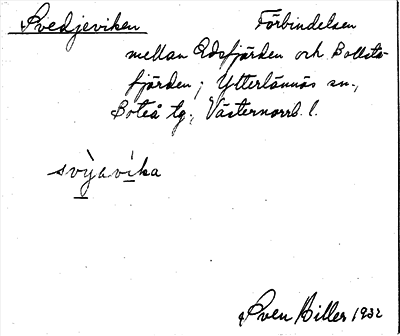 Svedjeviken Förbindelsen
mellan Edsfjärden och Bollsta-
fjärden; Ytterlännäs sn.,
Boteå tg., Västernorrl. l.
svỳavìka
Sven Hiller 1932